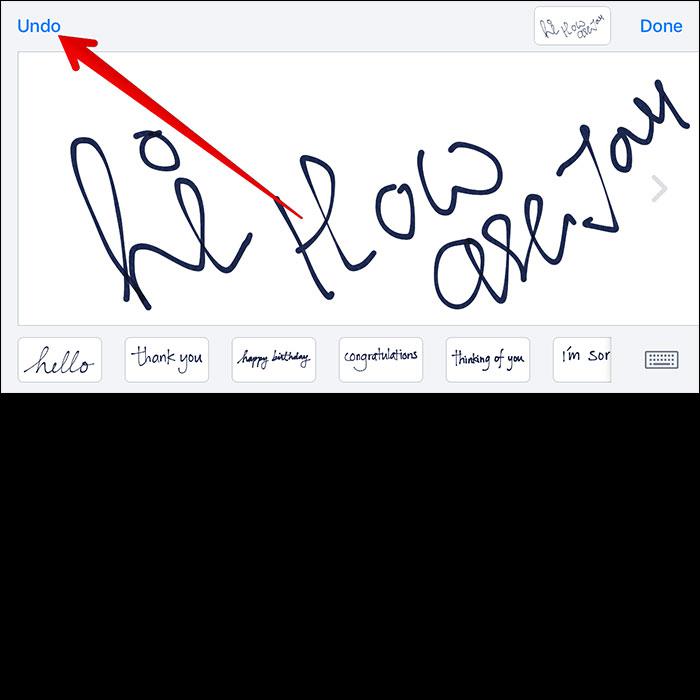 Undo
Done
hi How
are
hello
thank you
happy birthday
congratulations
thinking of you
I'm sor